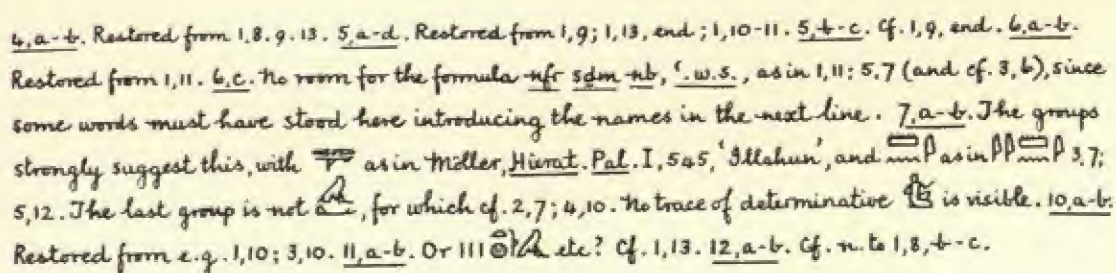 4,a-b. Restored from 1,8.9.13. 5,a-d. Restored from 1,9; 1,13, end; 1,10-11. 5,b-c. Cf. 1,9, end. 6,a-b.
Restored from 1,11. 6,c. No room for the formula nfr sḏm nb, ꜥ.w.s., as in 1,11; 5,7 (and cf. 3,6), since
some words must have stood here introducing the names in the next line. 7,a-b. The groups
strongly suggest this, with as in Möller, Hierat. Pal. I, 545, 'Illahun', and as in 3,7;
5,12. The last group is not , for which cf. 2,7; 4,10. No trace of determinative is visible. 10,a-b.
Restored from e.g. 1,10; 3,10. 11,a-b. Or etc? Cf. 1,13. 12,a-b. Cf. n. to 1,8, b-c.